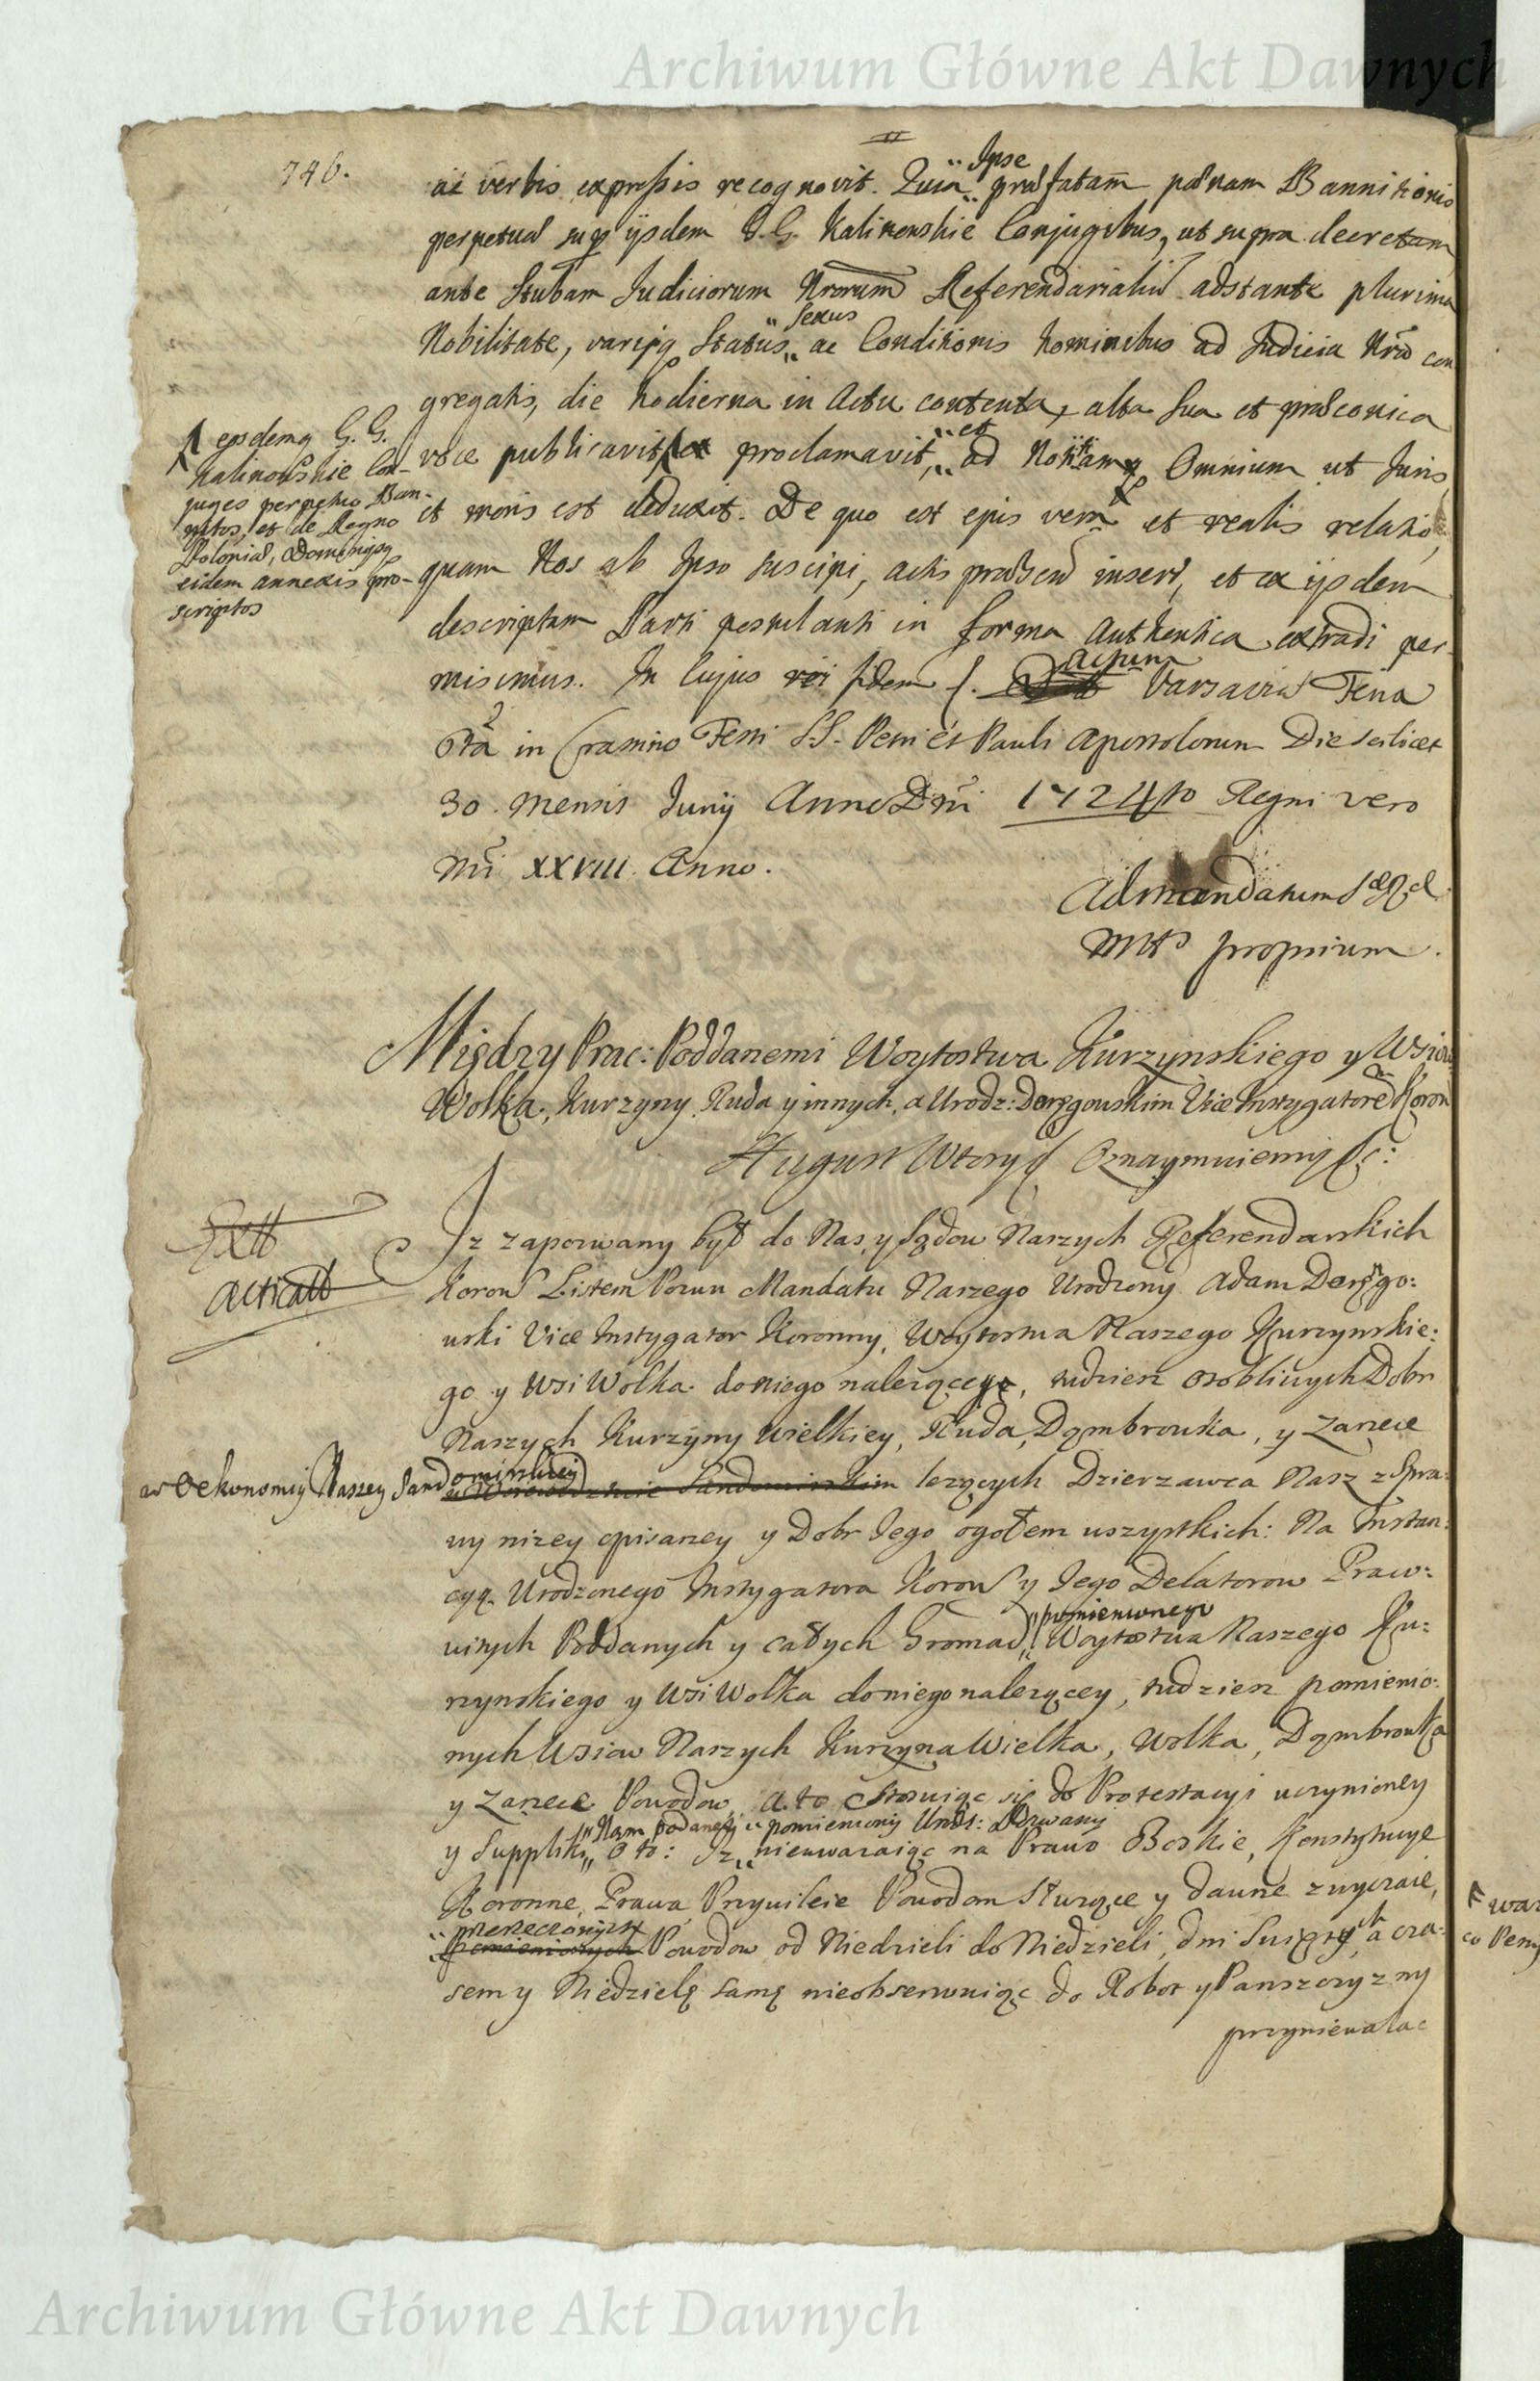 Archiwum Główne Akt Dawnych
746.
ac verbis expressis recognovit. Quia Ipse præfatam pænam Bannitionis
perpetuæ sup ijsdem G.G. Kalinowskie Conjugibus, ut supra decretam
ante Stubam Judiciorum Nrorum Referendarialiu adstante plurima
Nobilitate, varijsq Status, Sexus ac Conditionis hominibus ad Judicia Nra con
gregatis, die hodierna in Actu contenta, alta sua et præconica
voce publicavit, proclamavit, et ad Notitiamq Omnium ut Juris
eosdemq G. G.
Kalinowskie Con-
juges perpetuo Ban-
nitos, et de Regno
Poloniæ, Dominijsq
eidem annexis pro-
scriptos
et moris est deduxit. De quo est ejus vera et realis relatio,
quam Nos ab Ipso suscipi, actis præsen inseri, et ex ijsdem
descriptam Parti postulanti in forma Authentica extradi per-
misimus. In Cujus rei fidem Actum Varsaviæ Feria
6ta in Crastino Festi S.S. Petri et Pauli Apostolorum Die scilicet
30 Mensis Junij Anno Dni 1724to Regni vero
Nri XXVIII Anno.
Ad mandatum S R
Mtis proprium.
Między Prac: Poddanemi Woytostwa Kurzynskiego y Wsiow
Wolka, Kurzyny, Ruda y innych, a Urodz: Deręgowskim Vice Instygatore Koron
August Wtory Oznaymuiemy &c:
Extt
Acticatt
Iz zapozwany był do Nas, y Sądow Naszych Referendarskich
Koron Listem Pozwu Mandatu Naszego Urodzony Adam Deręgo:
wski Vice Instygator Koronny, Woytostwa Naszego Kurzynskie:
go y Wsi Wolka do niego nalezącey, tudziesz osobliwych Dobr
Naszych Kurzyny Wielkiey, Ruda, Dąmbrowka, y Zarzecze
w Oekonomiy Naszey Sandomirskiey w Woiewodztwie Sandomirskim lezących Dzierzawca Nasz z Spra:
wy nizey opisaney y Dobr Jego ogołem wszystkich: Na Instan:
cyą Urodzonego Instygatora Koron y Jego Delatorow Praw:
witych Poddanych y całych Gromad pomienionego Woytostwa Naszego Ku:
rzynskiego y Wsi Wolka do niego nalezącey, tudziesz pomienio:
nych Wsiow Naszych Kurzyna Wielka, Wolka, Dąmbrowka
y Zarzecze Powodow, a to stosuiąc się do Protestacyi uczynioney
y Suppliki Nam podaney o to: Iz pomieniony Urodz: Pozwany nieuwazaiąc na Prawo Boskie, Konstytucye
Koronne, Prawa, Przywileie Powodom słuzące y dawne zwyczaie,
przerzeczonych pomienionych Powodow od Niedzieli do Niedzieli, dni Swiętych, a cza:
sem y Niedzielę samę nieobserwuiąc do Robot y Panszczyzny
przyniewalac
Archiwum Główne Akt Dawnych